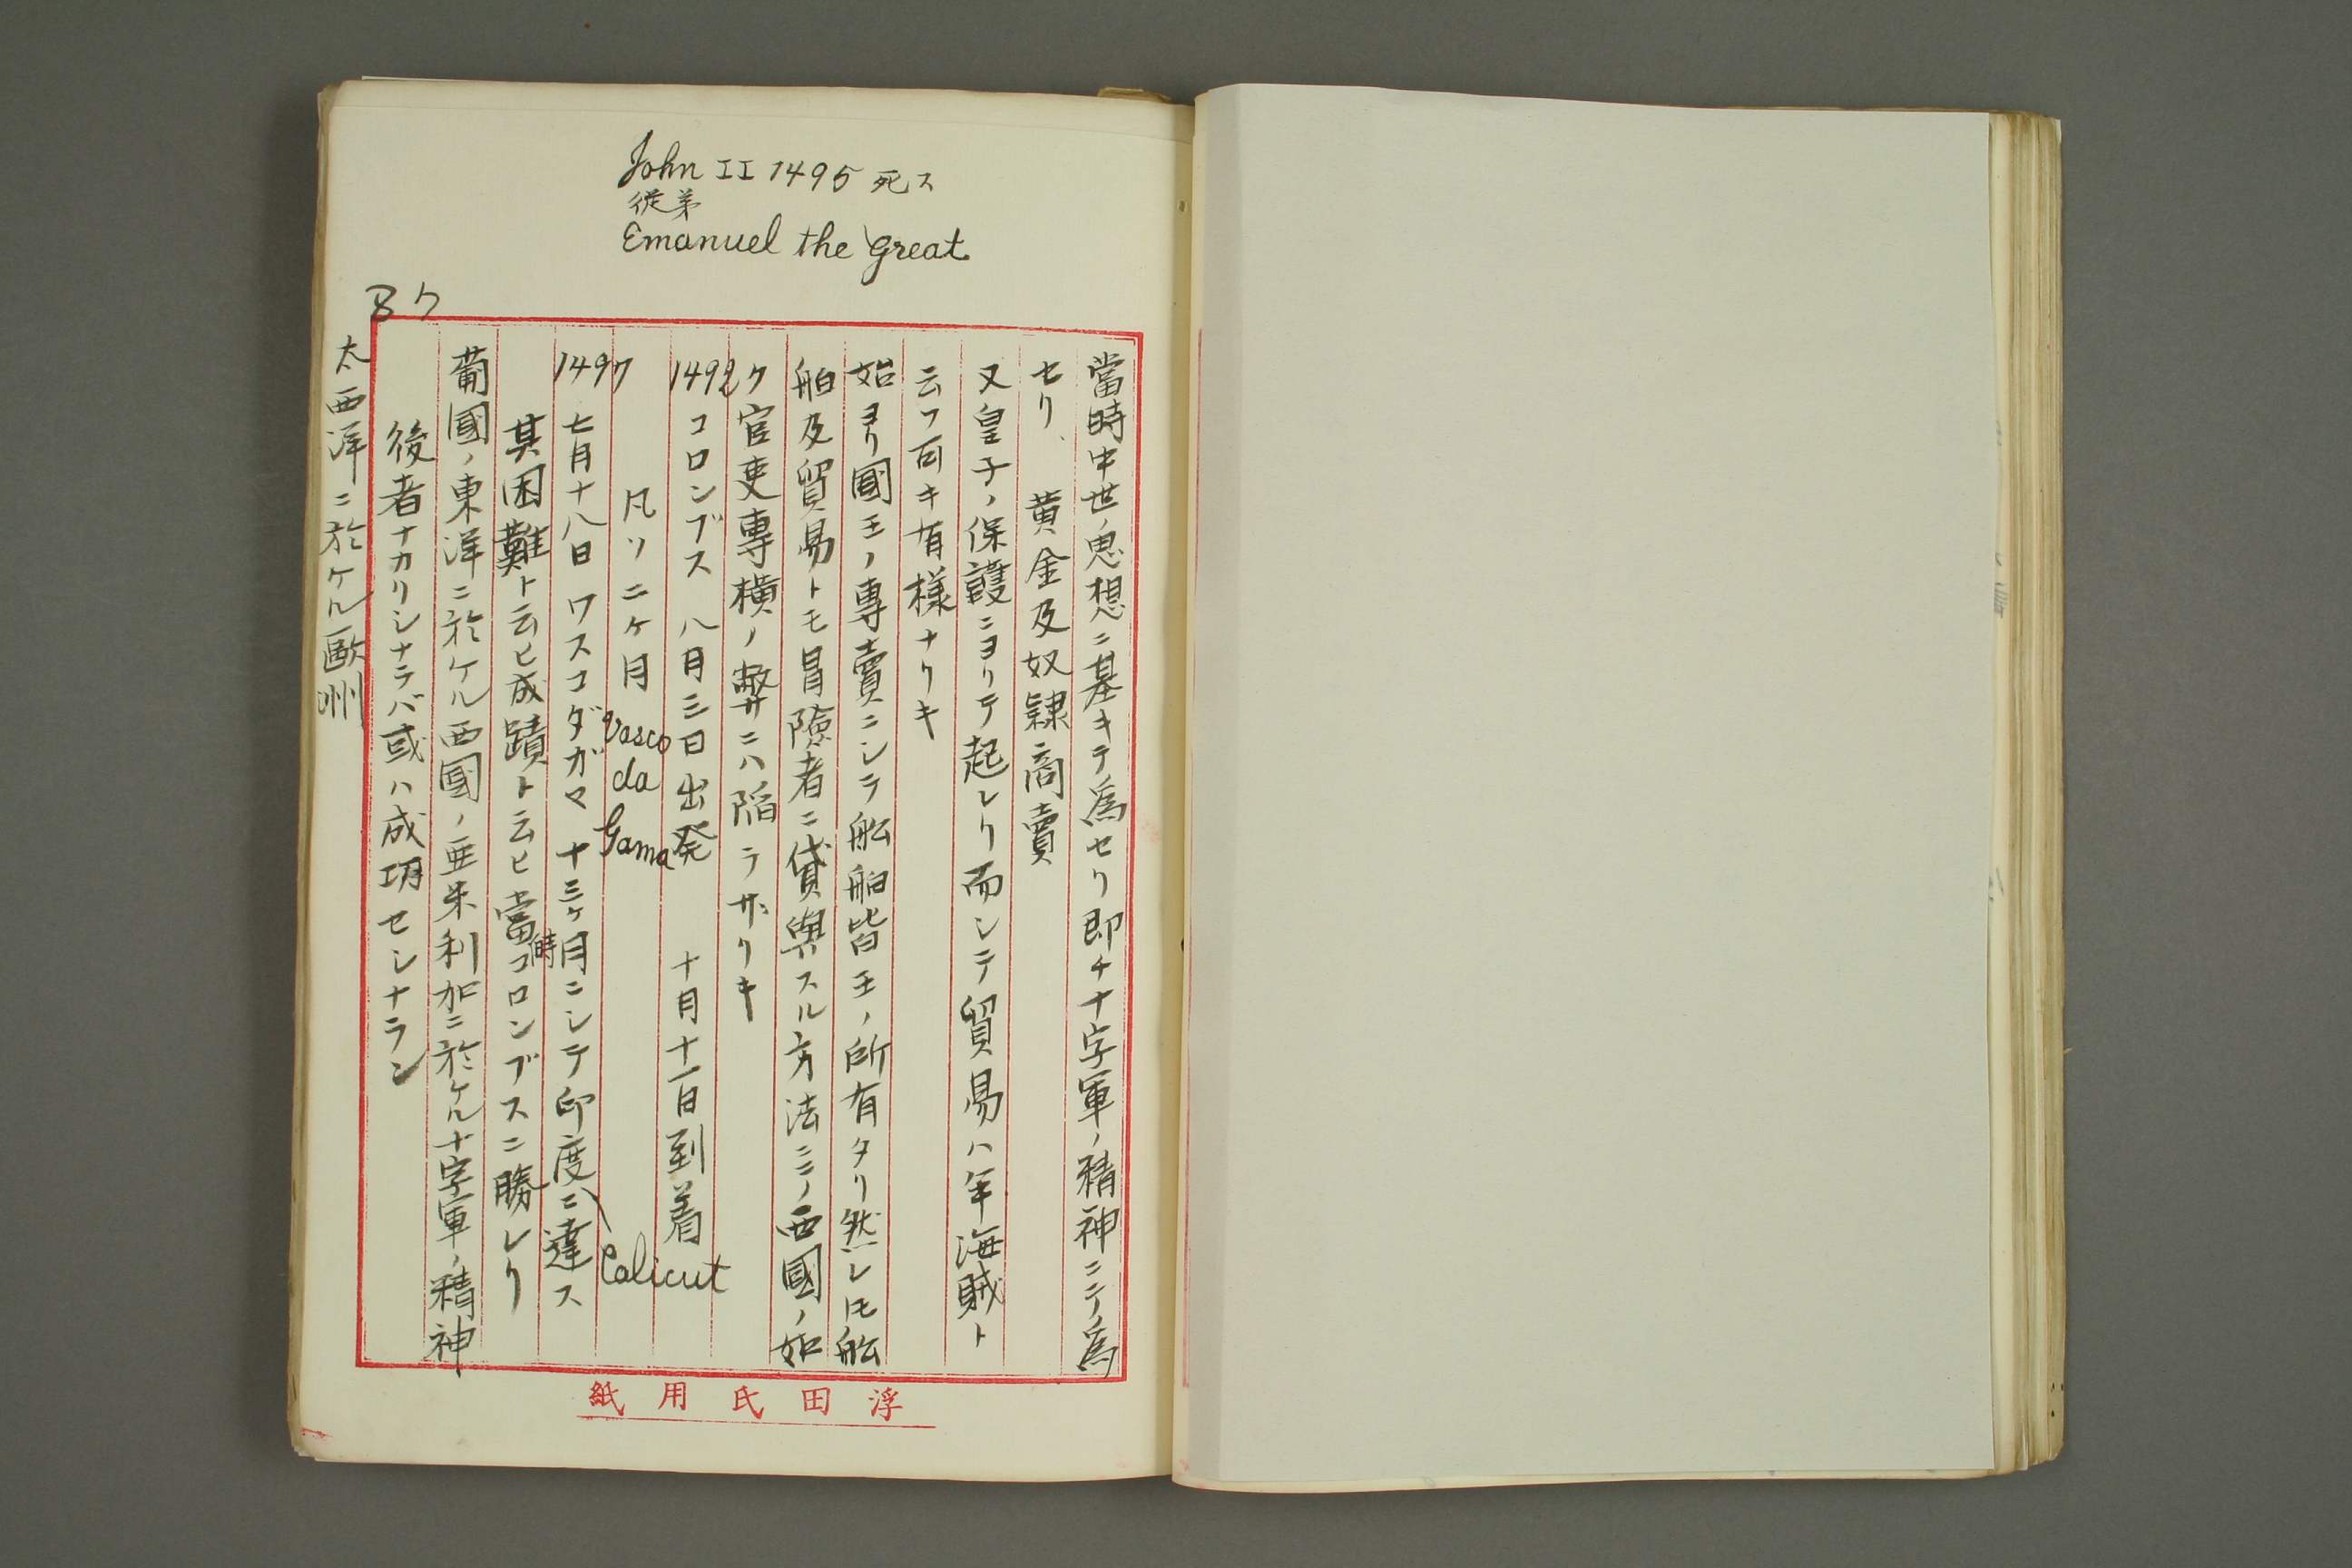 John II 1495 死ス
従弟
Emanuel the Great
87
當時中世ノ思想ニ基キテ為セリ即チ十字軍ノ精神ニテノ為
セリ、黄金及奴隷商賣
又皇子ノ保護ニヨリテ起レリ而シテ貿易ハ年海賊ト
云フ可キ有様ナリキ
始ヨリ國王ノ專賣ニシテ船舶皆王ノ所有タリ然レ𪜈船
舶及貿易トモ冒險者ニ貸與スル方法ニテノ西國ノ如
ク官吏專横ノ弊ニハ陥ラザリキ
1492 コロンブス 八月三日出発 十月十一日到着
凡ソ二ヶ月
Vasco da Gama
Calicut
1497 七月十八日 ワスコダガマ 十三ヶ月ニシテ印度ニ達ス
其困難ト云ヒ成蹟ト云ヒ當時コロンブスニ勝レリ
葡國ノ東洋ニ於ケル西國ノ亜米利加ニ於ケル十字軍ノ精神
後者ナカリシナラバ或ハ成功センナラン
太西洋ニ於ケル歐州
浮田氏用紙